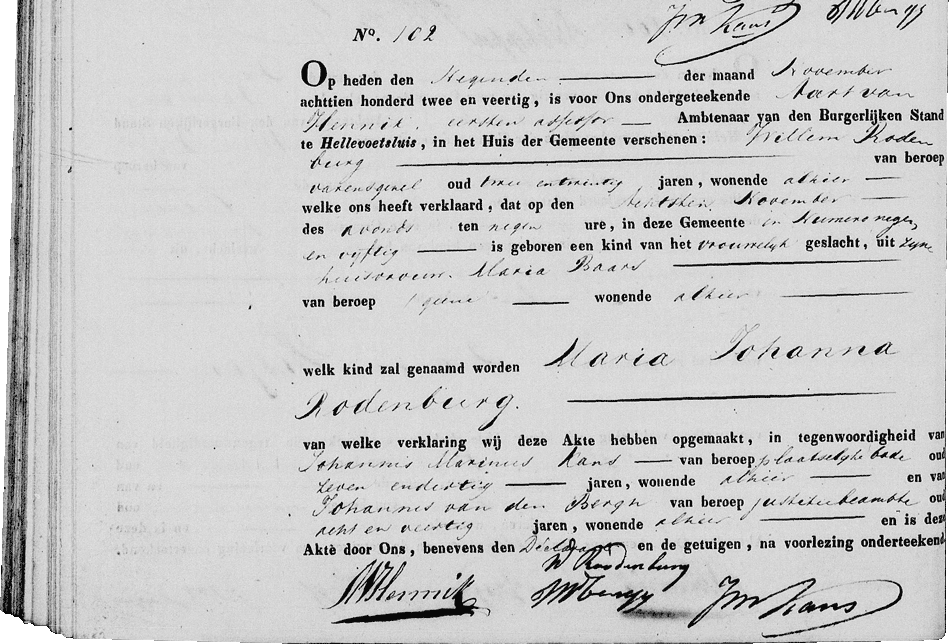 Jm Kans JVDBergh
No. 102
Op heden den Negenden der maand November
achttien honderd twee en veertig, is voor Ons ondergeteekende Aart van
Hennik, eersten assessor Ambtenaar van den Burgerlijken Stand
te Hellevoetsluis, in het Huis der Gemeente verschenen: Willem Roden
burg van beroep
varensgezel oud twee entwintig jaren, wonende alhier
welke ons heeft verklaard, dat op den Achtsten November
des avonds ten negen ure, in deze Gemeente in Numero negen
en vyftig is geboren een kind van het vrouwelyk geslacht, uit zyne
huisvrouw Maria Baars
van beroep geene wonende alhier
welk kind zal genaamd worden Maria Johanna
Rodenburg.
van welke verklaring wij deze Akte hebben opgemaakt, in tegenwoordigheid van
Johannis Marinus Kans van beroep plaatselyke bode oud
zeven endertig jaren, wonende alhier en van
Johannis van den Bergh van beroep justitiebeambte oud
acht en veertig jaren, wonende alhier en is deze
Akte door Ons, benevens den Declarant en de getuigen, na voorlezing onderteekend.
W Roodenburg
AVHennik JVDBergh Jm Kans